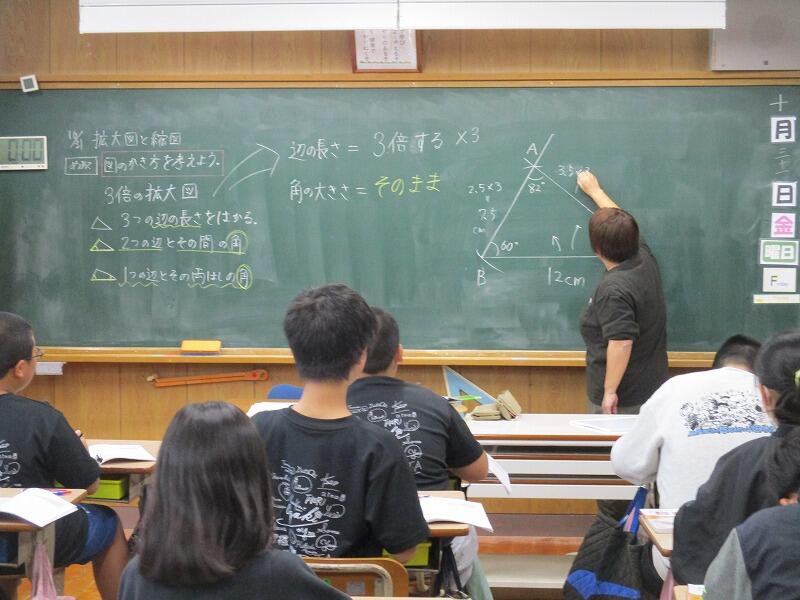 拡大図と縮図
図のかき方を考えよう。
3倍の拡大図
3つの辺の長さをはかる。
2つの辺とその間の角
1つの辺とその両はしの角
辺の長さ = 3倍する ×3
角の大きさ = そのまま
A
82°
3.5×3
2.5×3
cm
60°
B
12cm
十
月
日
金
曜日
0:00